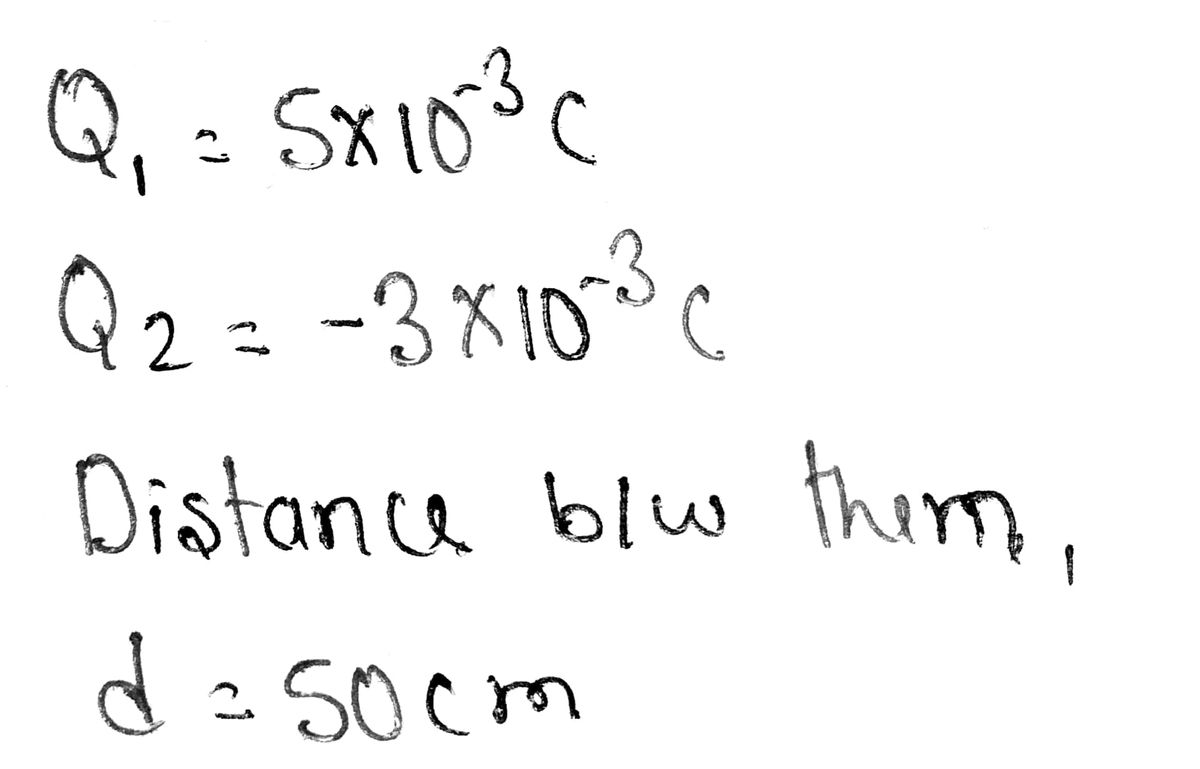 Q₁ = 5×10⁻³ C
Q₂ = -3×10⁻³ C
Distance b/w them,
d = 50cm